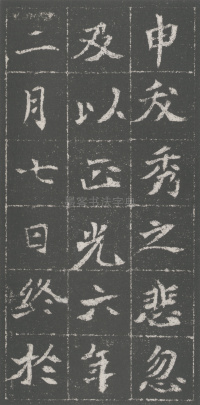 申苗秀之悲忽
及以正光六年
二月七日终於